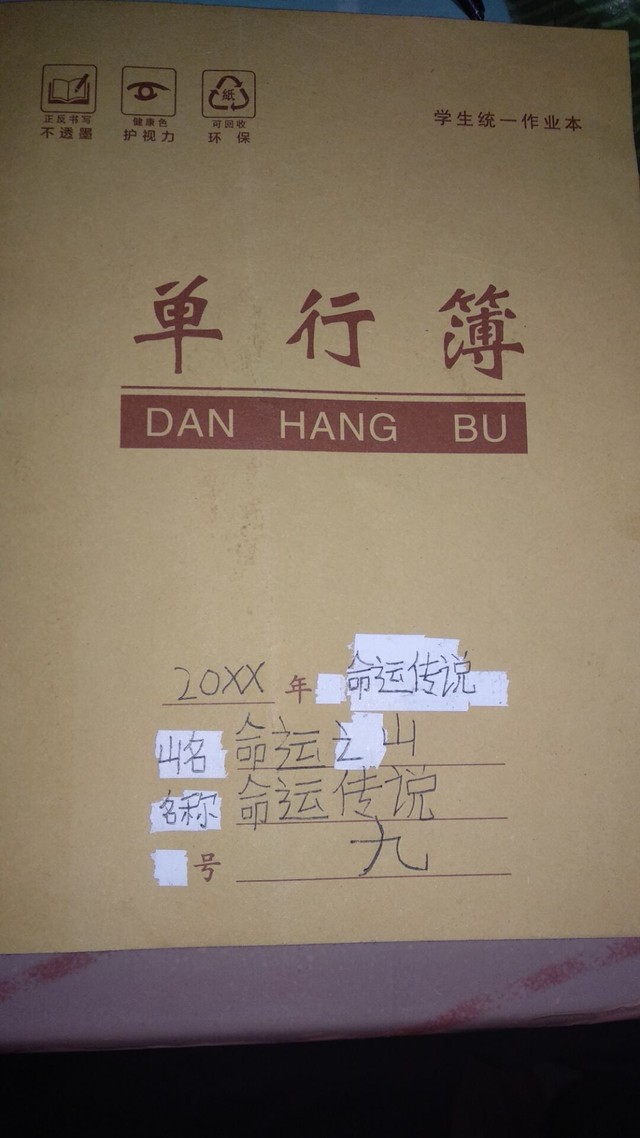 正反书写 健康色 可回收
不透墨 护视力 环保
紙
学生统一作业本
单行簿
DAN HANG BU
20XX年 命运传说
山名 命运之山
名称 命运传说
号 九